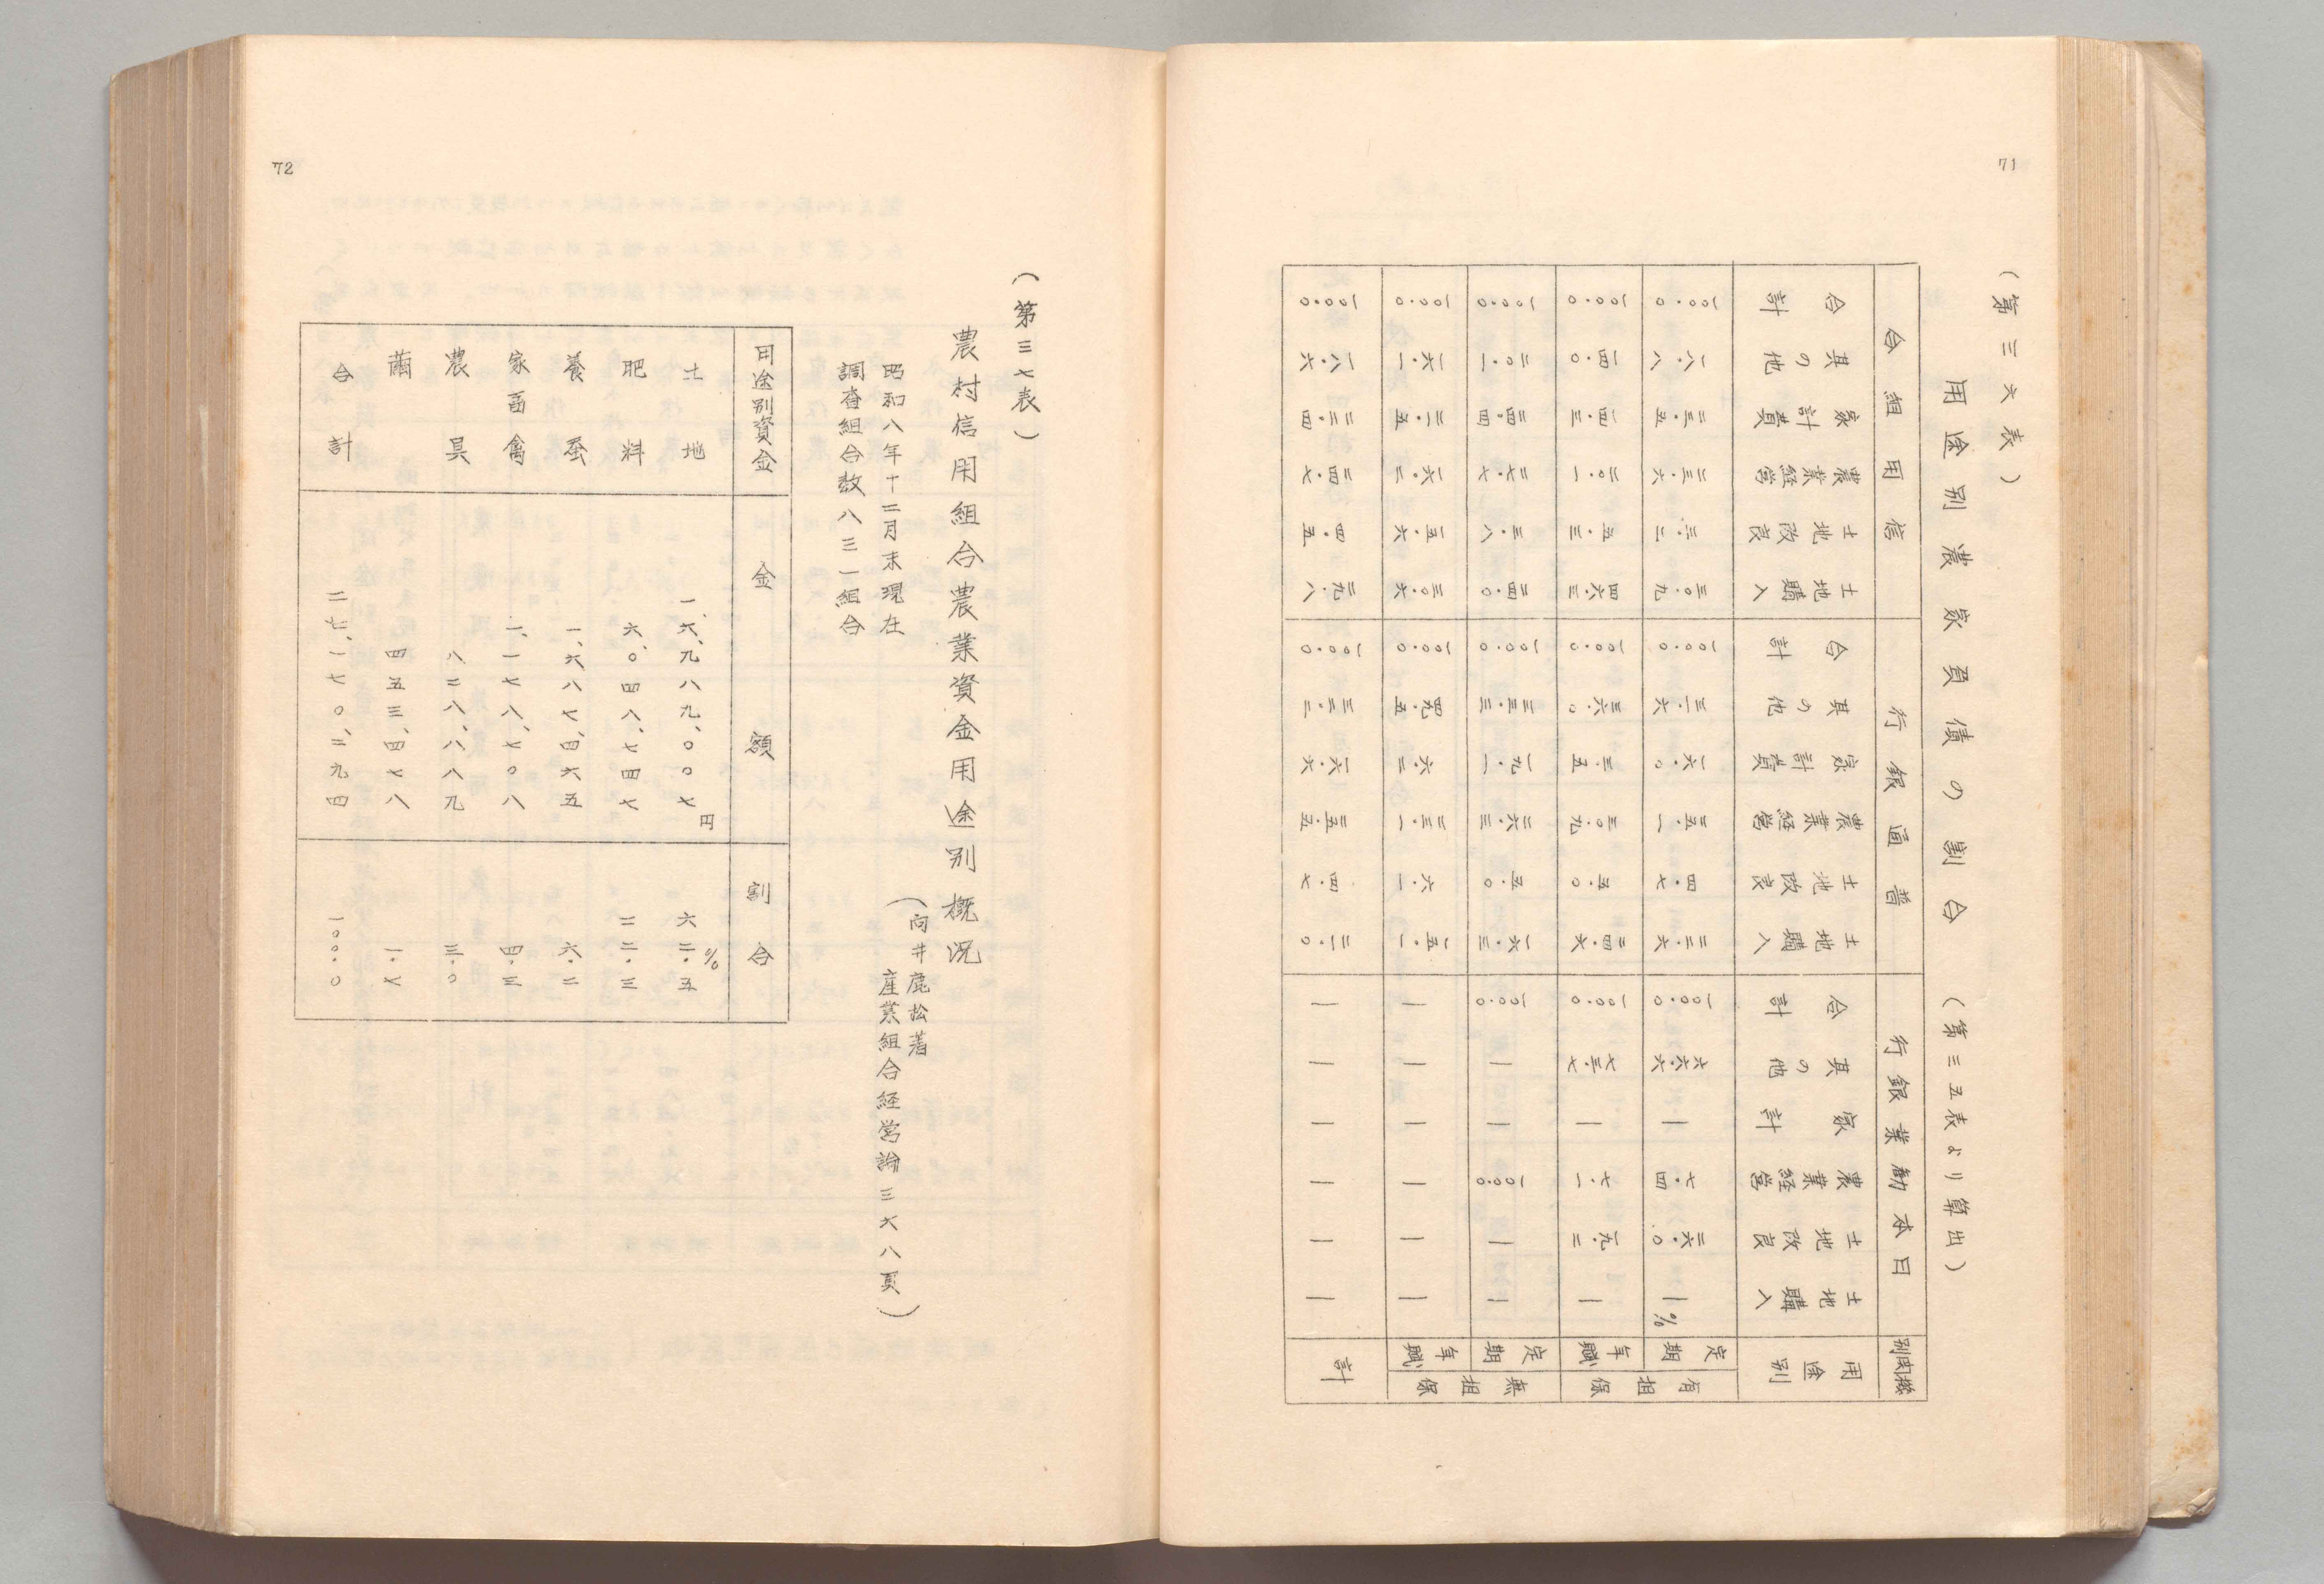 71
(第三六表)
用途別農家負債の割合 (第三五表より算出)
機関別
用途別
有担保
無担保
計
定期
年賦
定期
年賦
日本勧業銀行
土地購入 ―% ― ― ― ―
土地改良 二六.〇 一九.二 ― ― ―
農業経営 七.四 七.一 一〇〇.〇 ― ―
家計 ― ― ― ― ―
其の他 六六.六 七三.七 ― ― ―
合計 一〇〇.〇 一〇〇.〇 一〇〇.〇 ― ―
普通銀行
土地購入 二二.六 二四.六 一六.三 一五.一 二一.〇
土地改良 四.七 五.〇 五.〇 六.一 四.七
農業経営 二五.一 三〇.九 二六.三 二三.一 二五.五
家計費 一六.〇 三.五 一九.一 六.二 一六.六
其の他 三一.六 三六.〇 三三.三 四九.五 三二.二
合計 一〇〇.〇 一〇〇.〇 一〇〇.〇 一〇〇.〇 一〇〇.〇
信用組合
土地購入 三〇.九 四六.三 二四.〇 三〇.六 二九.八
土地改良 三.二 五.三 三.八 一五.六 四.五
農業経営 二三.六 二〇.一 二七.七 一六.二 二四.七
家計費 二三.五 一四.三 二四.四 二一.五 二二.四
其の他 一八.八 一四.〇 二〇.一 一六.一 一八.六
合計 一〇〇.〇 一〇〇.〇 一〇〇.〇 一〇〇.〇 一〇〇.〇
72
(第三七表)
農村信用組合農業資金用途別概況
(向井鹿松著
産業組合経営論三六八頁)
昭和八年十二月末現在
調査組合数八三一組合
用途別資金 金額 割合
土地 一六、九八九、〇〇七円 六二.五%
肥料 六、〇四八、七四七 二二.三
養蚕 一、六八七、四六五 六.二
家畜禽 一、一七八、七〇八 四.三
農具 八二八、八八九 三.〇
繭 四五三、四七八 一.七
合計 二七、一七〇、二九四 一〇〇.〇